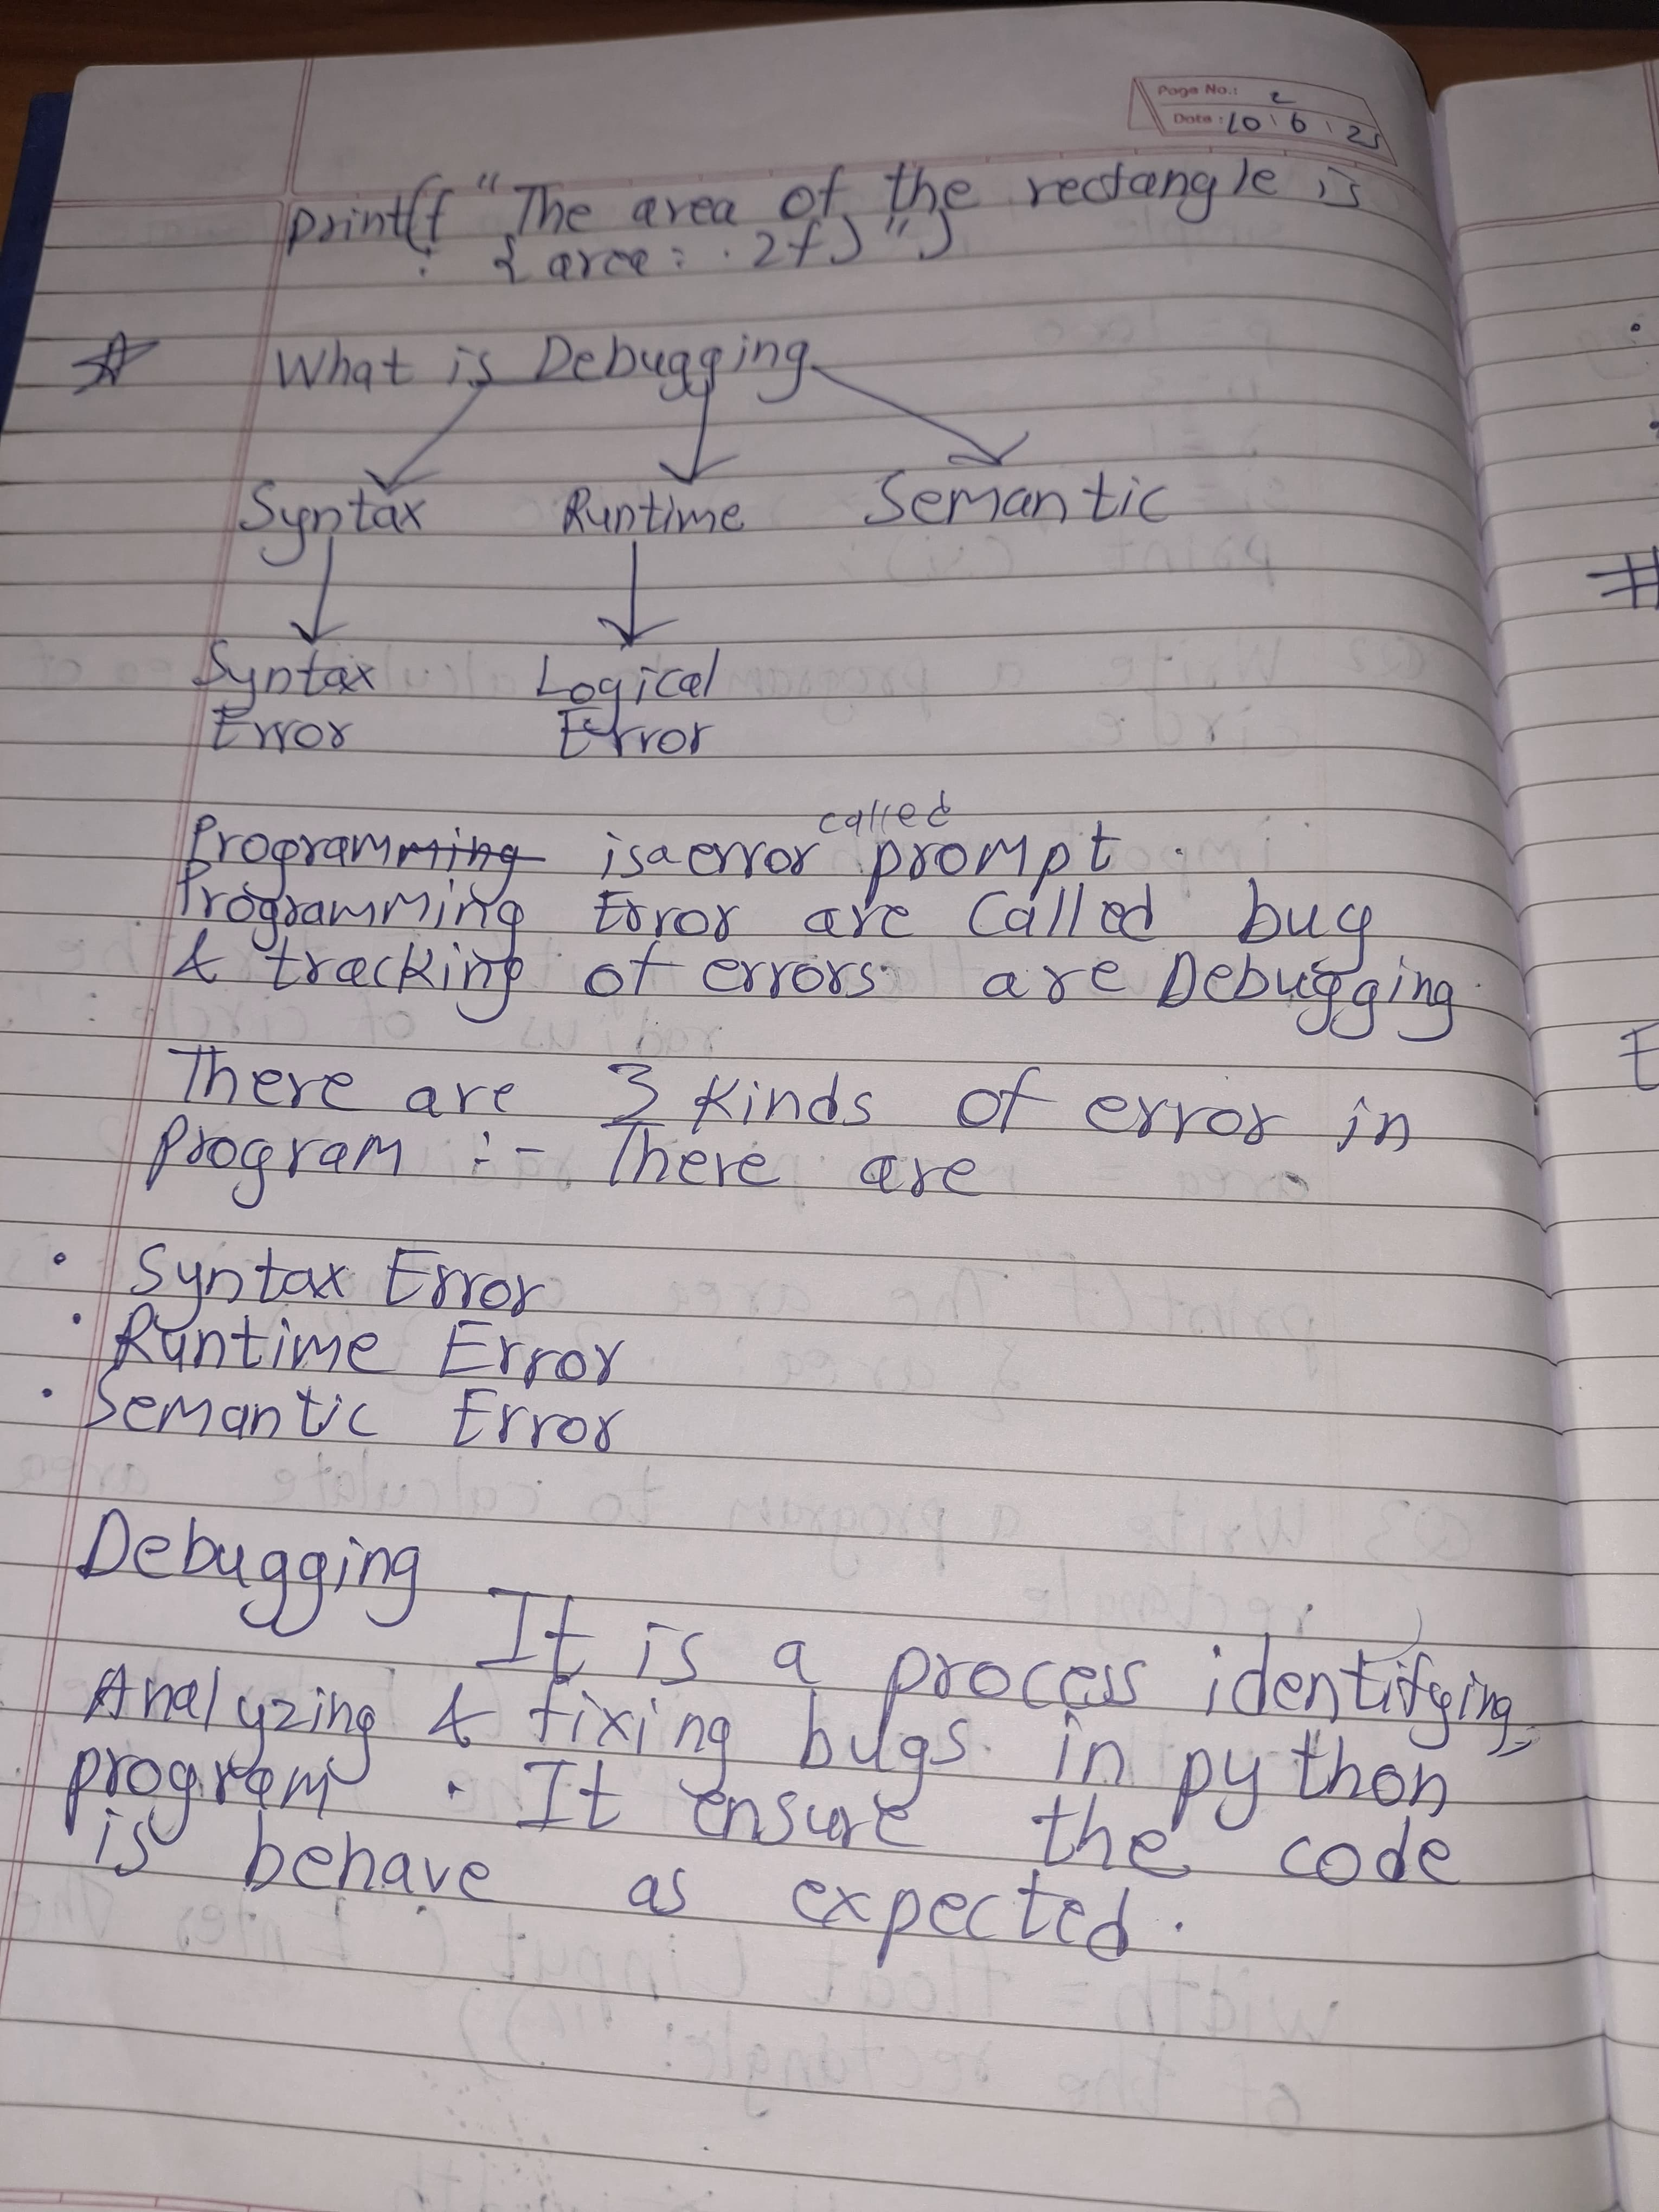 Page No.: 2
Date: 10 6 25
print(f "The area of the rectangle is
: {area: .2f}")
What is Debugging
Syntax Runtime Semantic
Syntax Logical
Error Error
called
Programming is a error prompt.
Programming Error are called bug
& tracking of errors are Debugging
There are 3 kinds of error in
program :- There are
• Syntax Error
• Runtime Error
• Semantic Error
Debugging
It is a process identifying,
Analyzing & fixing bugs in python
program. It ensure the code
is behave as expected.